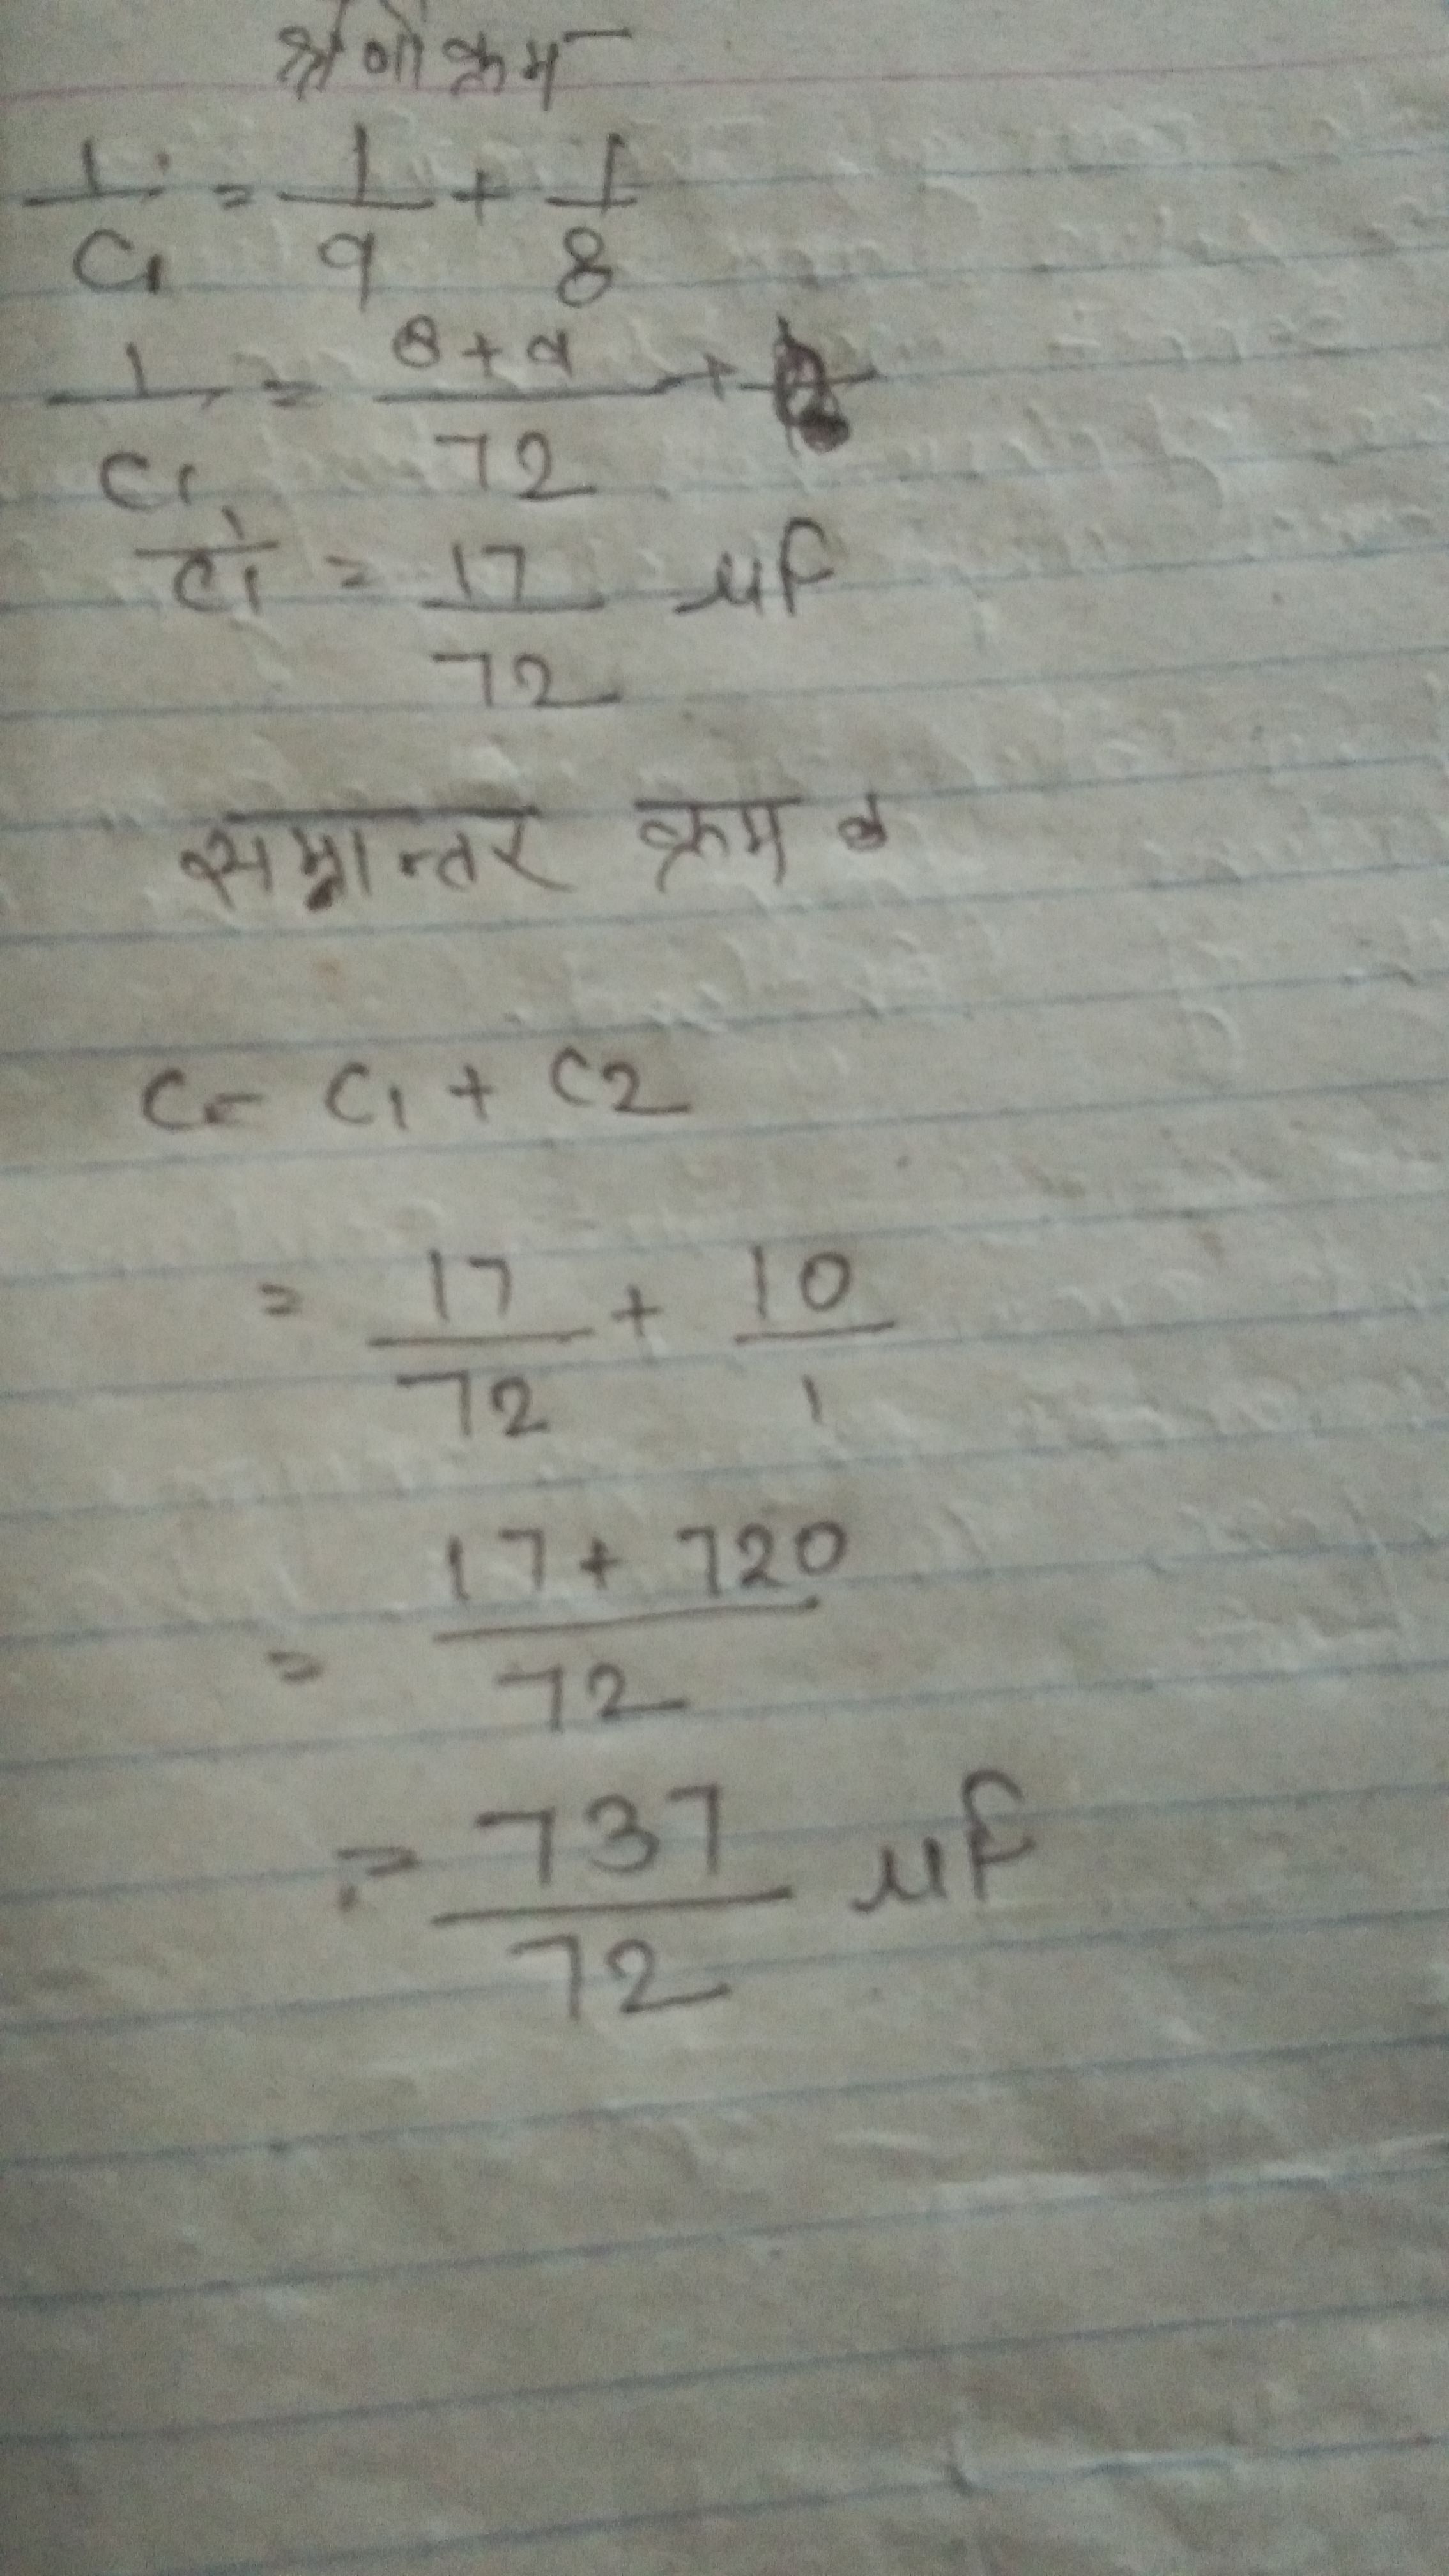 श्रेणीक्रम
1/C1 = 1/9 + 1/8
1/C1 = 8+9/72 +
1/C1 = 17/72 μF
समान्तर क्रम
C = C1 + C2
= 17/72 + 10/1
= 17+720/72
= 737/72 μF